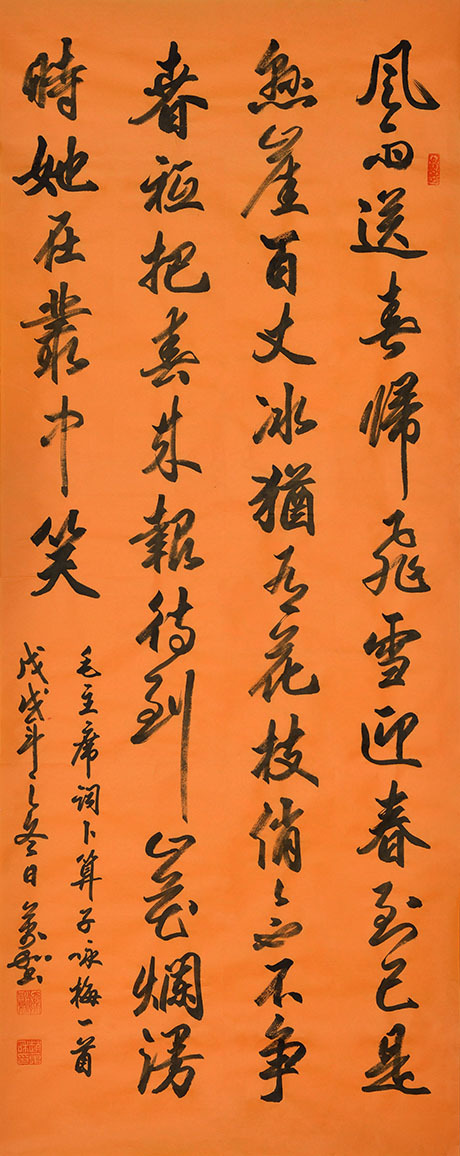 風雨送春歸飛雪迎春到已是
懸崖百丈冰猶有花枝俏々也不争
春祇把春来報待到山花爛漫
時她在叢中笑
毛主席詞卜算子咏梅一首
戊戌年之冬日